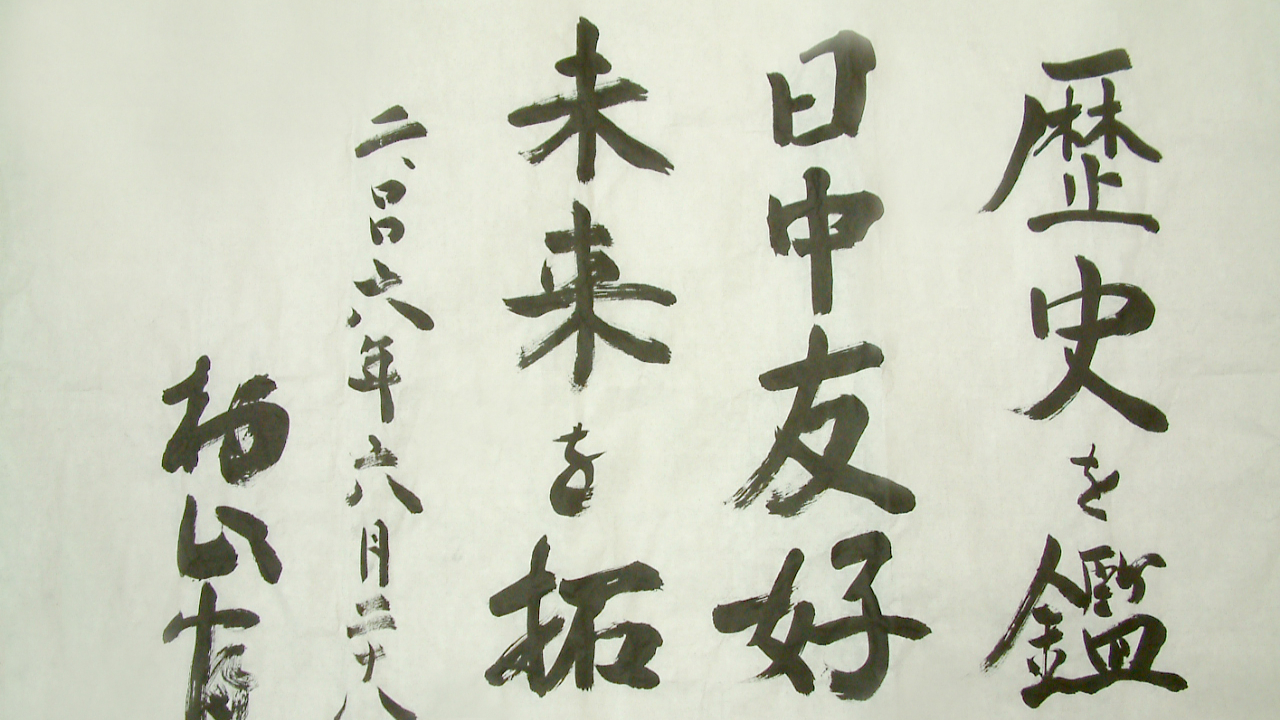 歴史を鑑
日中友好
未来を拓
二〇〇六年六月二十八
村山富